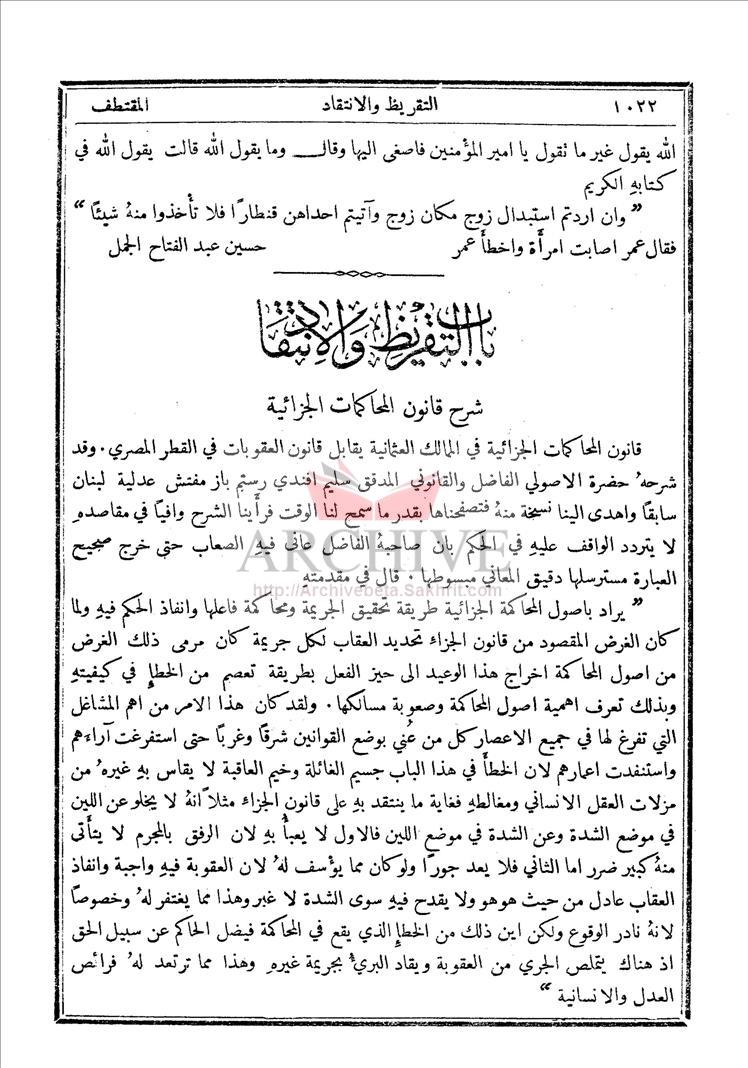 ١٠٢٢ التقريظ والانتقاد المقتطف
الله يقول غير ما نقول يا امير المؤمنين فاصغى اليها وقال وما يقول الله قالت يقول الله في
كتابهِ الكريم
” وان اردتم استبدال زوج مكان زوج وآتيتم احداهن قنطارًا فلا تأخذوا منهُ شيئًا “
فقال عمر اصابت امرأة واخطأ عمر حسين عبد الفتاح الجمل
باب التقريظ والانتقاد
شرح قانون المحاكمات الجزائية
قانون المحاكمات الجزائية في المالك العثمانية يقابل قانون العقوبات في القطر المصري . وقد
شرحهُ حضرة الاصولي الفاضل والقانوني المدقق سليم افندي رستم باز مفتش عدلية لبنان
سابقًا واهدى الينا نسخة منهُ فتصفحناها بقدر ما سمح لنا الوقت فرأينا الشرح وافيًا في مقاصدهِ
لا يتردد الواقف عليهِ في الحكم بان صاحبهُ الفاضل عانى فيهِ الصعاب حتى خرج صحيح
العبارة مسترسلها دقيق المعاني مبسوطها . قال في مقدمته
” يراد باصول المحاكمة الجزائية طريقة تحقيق الجريمة ومحاكمة فاعلها وانفاذ الحكم فيهِ ولما
كان الغرض المقصود من قانون الجزاء تحديد العقاب لكل جريمة كان مرمى ذلك الغرض
من اصول المحاكمة اخراج هذا الوعيد الى حيز الفعل بطريقة تعصم من الخطإ في كيفيتهِ
وبذلك تعرف اهمية اصول المحاكمة وصعوبة مسالكها . ولقد كان هذا الامر من اهم المشاغل
التي تفرغ لها في جميع الاعصار كل من عُني بوضع القوانين شرقًا وغربًا حتى استفرغت آراءَهم
واستنفدت اعمارهم لان الخطأ في هذا الباب جسيم الغائلة وخيم العاقبة لا يقاس بهِ غيرهُ من
مزلات العقل الانساني ومغالطهِ فغاية ما ينتقد بهِ على قانون الجزاء مثلاً انهُ لا يخلو عن اللين
في موضع الشدة وعن الشدة في موضع اللين فالاول لا يعبأ بهِ لان الرفق بالمجرم لا يتأتى
منهُ كبير ضرر اما الثاني فلا يعد جورًا ولو كان مما يؤسف لهُ لان العقوبة فيهِ واجبة وانفاذ
العقاب عادل من حيث هو هو ولا يقدح فيهِ سوى الشدة لا غير وهذا مما يغتفر لهُ وخصوصًا
لانهُ نادر الوقوع ولكن اين ذلك من الخطإ الذي يقع في المحاكمة فيضل الحاكم عن سبيل الحق
اذ هناك يتملص الجري من العقوبة ويقاد البريُّ بجريمة غيرهِ وهذا مما ترتعد لهُ فرائص
العدل والانسانية “
ARCHIVE
http://Archivebeta.Sakhrit.com